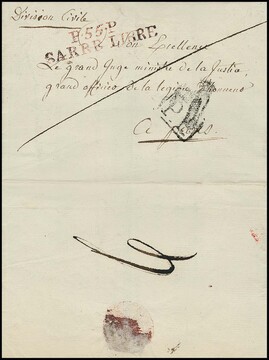 Division Civile
P.55.P
SARRE LIBRE
Son Excellence
Le grand Juge ministre de la Justice
grand officier de la legion d'honneur
A Paris.